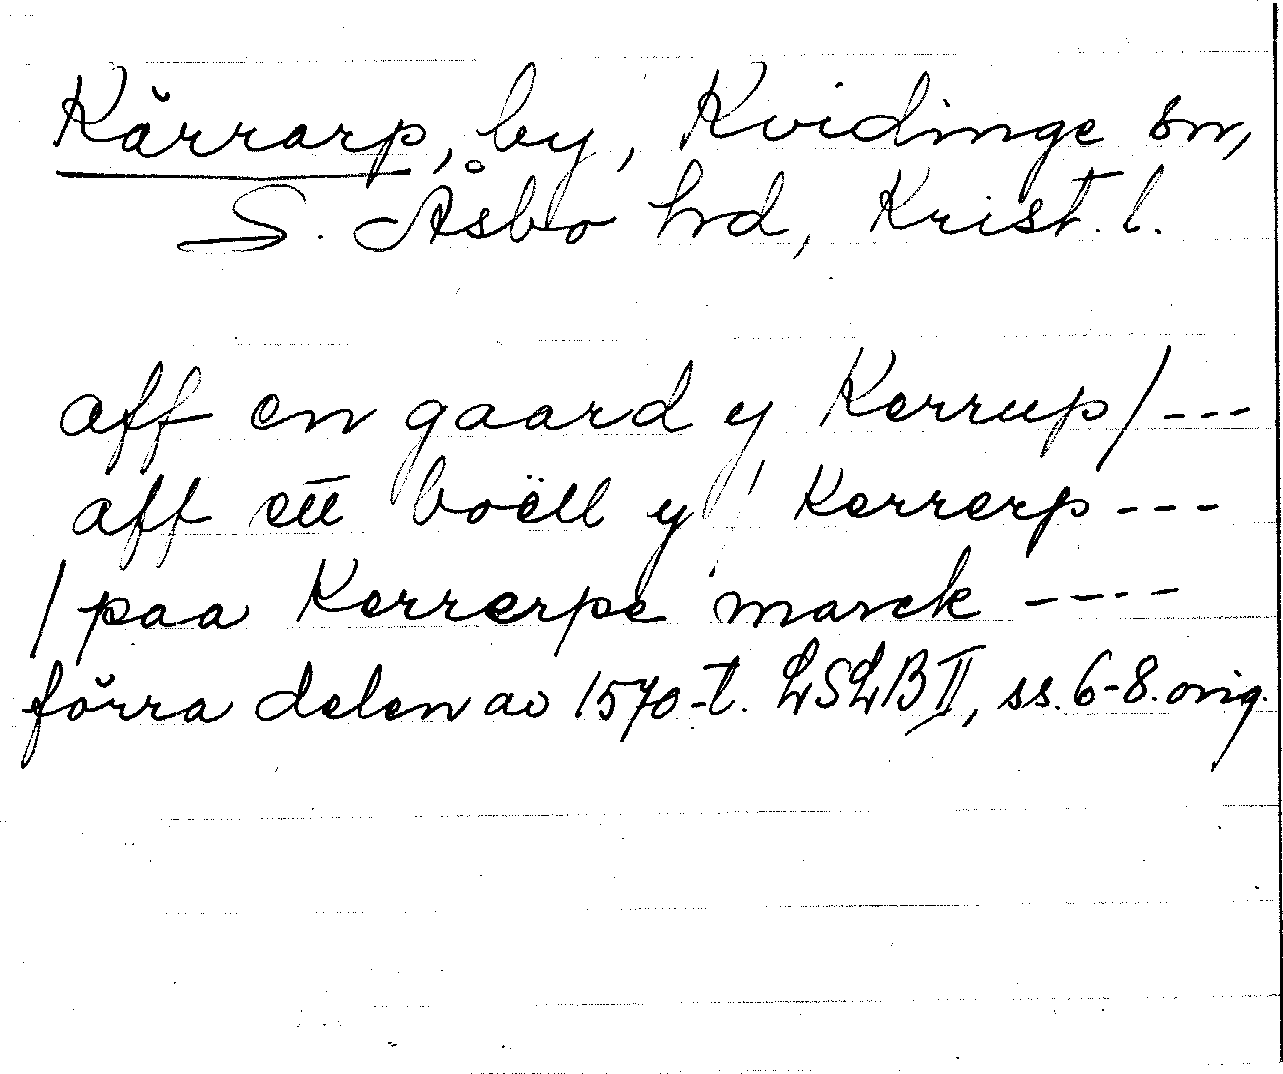 Kärrarp, by, Kvidinge sn,
S. Åsbo hd, Krist. l.
aff en gaard y Kerrup/---
aff ett boëll y Kerrerp ---
/ paa Kerrerpe marck ----
förra delen av 1570-t. LSLB II, ss. 6-8. orig.